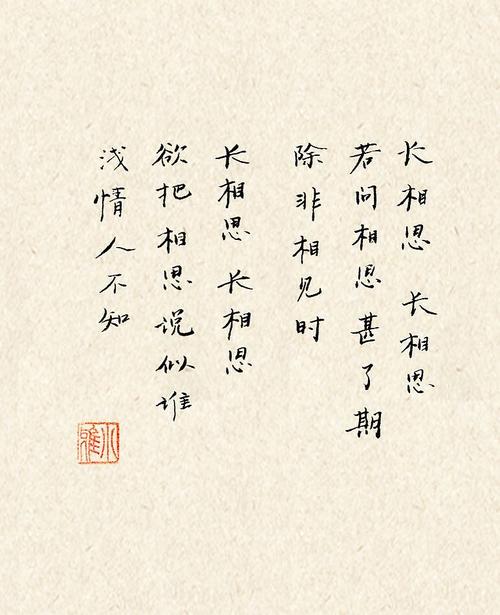 长相思 长相思
若问相思甚了期
除非相见时
长相思 长相思
欲把相思说似谁
浅情人不知
小雅